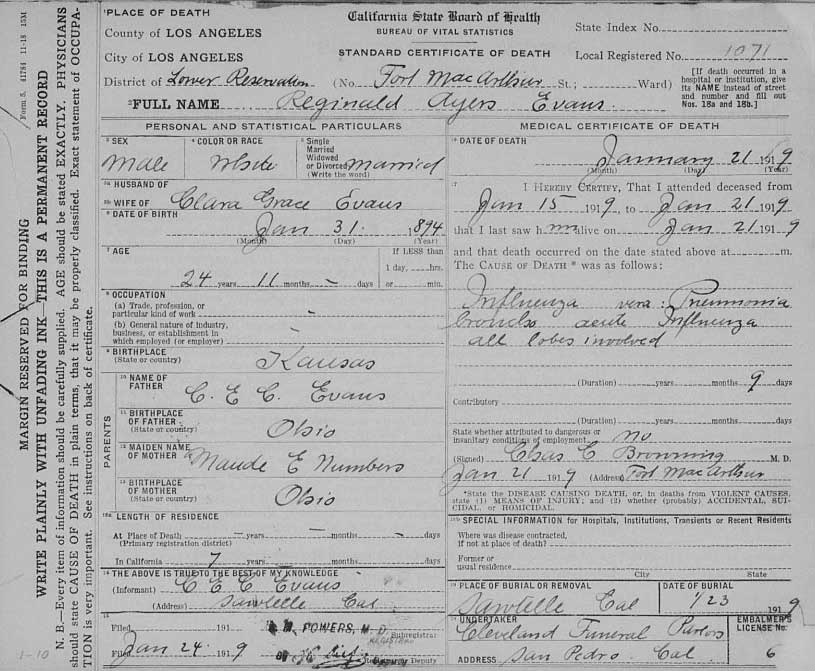 Form 5. 41784 11-18 15M
MARGIN RESERVED FOR BINDING
WRITE PLAINLY WITH UNFADING INK—THIS IS A PERMANENT RECORD
N. B.—Every item of information should be carefully supplied. AGE should be stated EXACTLY. PHYSICIANS
should state CAUSE OF DEATH in plain terms, that it may be properly classified. Exact statement of OCCUPA-
TION is very important. See instructions on back of certificate.
1-10
1 PLACE OF DEATH
County of LOS ANGELES
City of LOS ANGELES
California State Board of Health
BUREAU OF VITAL STATISTICS
STANDARD CERTIFICATE OF DEATH
State Index No.
Local Registered No. 1071
District of Lower Reservation (No. Fort MacArthur St.; Ward)
[If death occurred in a
hospital or institution, give
its NAME instead of street
and number and fill out
Nos. 18a and 18b.]
2 FULL NAME Reginald Ayers Evans
PERSONAL AND STATISTICAL PARTICULARS
3 SEX
Male
4 COLOR OR RACE
White
5 Single
Married
Widowed
or Divorced
(Write the word)
Married
5a HUSBAND OF
5b WIFE OF Clara Grace Evans
6 DATE OF BIRTH
Jan 31. 1894
(Month) (Day) (Year)
7 AGE
24 years 11 months – days
If LESS than
1 day, hrs.
or min.
8 OCCUPATION
(a) Trade, profession, or
particular kind of work –
(b) General nature of industry,
business, or establishment in
which employed (or employer) –
9 BIRTHPLACE
(State or country) Kansas
PARENTS
10 NAME OF
FATHER C. E. C. Evans
11 BIRTHPLACE
OF FATHER
(State or country) Ohio
12 MAIDEN NAME
OF MOTHER Maude E Numbers
13 BIRTHPLACE
OF MOTHER
(State or country) Ohio
LENGTH OF RESIDENCE
At Place of Death – years – months – days
(Primary registration district)
In California 7 years – months – days
14 THE ABOVE IS TRUE TO THE BEST OF MY KNOWLEDGE
(Informant) C E C Evans
(Address) Sawtelle Cal
15
Filed 191 POWERS, M. D.
Subregistrar
REGISTRAR
Filed Jan 24 1919 Deputy
MEDICAL CERTIFICATE OF DEATH
16 DATE OF DEATH
January 21 1919
(Month) (Day) (Year)
17 I HEREBY CERTIFY, That I attended deceased from
Jan 15 1919, to Jan 21 1919
that I last saw him alive on Jan 21 1919
and that death occurred on the date stated above at m.
The CAUSE OF DEATH * was as follows:
Influenza Pneumonia
broncho acute Influenza
all lobes involved
(Duration) years months 9 days
Contributory
(Duration) years months days
State whether attributed to dangerous or
insanitary conditions of employment no
(Signed) Chas C Browning M. D.
Jan 21 1919 (Address) Fort MacArthur
*State the DISEASE CAUSING DEATH, or, in deaths from VIOLENT CAUSES,
state (1) MEANS OF INJURY; and (2) whether (probably) ACCIDENTAL, SUI-
CIDAL, or HOMICIDAL.
18b SPECIAL INFORMATION for Hospitals, Institutions, Transients or Recent Residents
Where was disease contracted,
if not at place of death?
Former or
usual residence
City State
19 PLACE OF BURIAL OR REMOVAL
Sawtelle Cal
DATE OF BURIAL
1/23 1919
UNDERTAKER
Cleveland Funeral Parlors
ADDRESS San Pedro Cal
EMBALMER'S
LICENSE No.
6